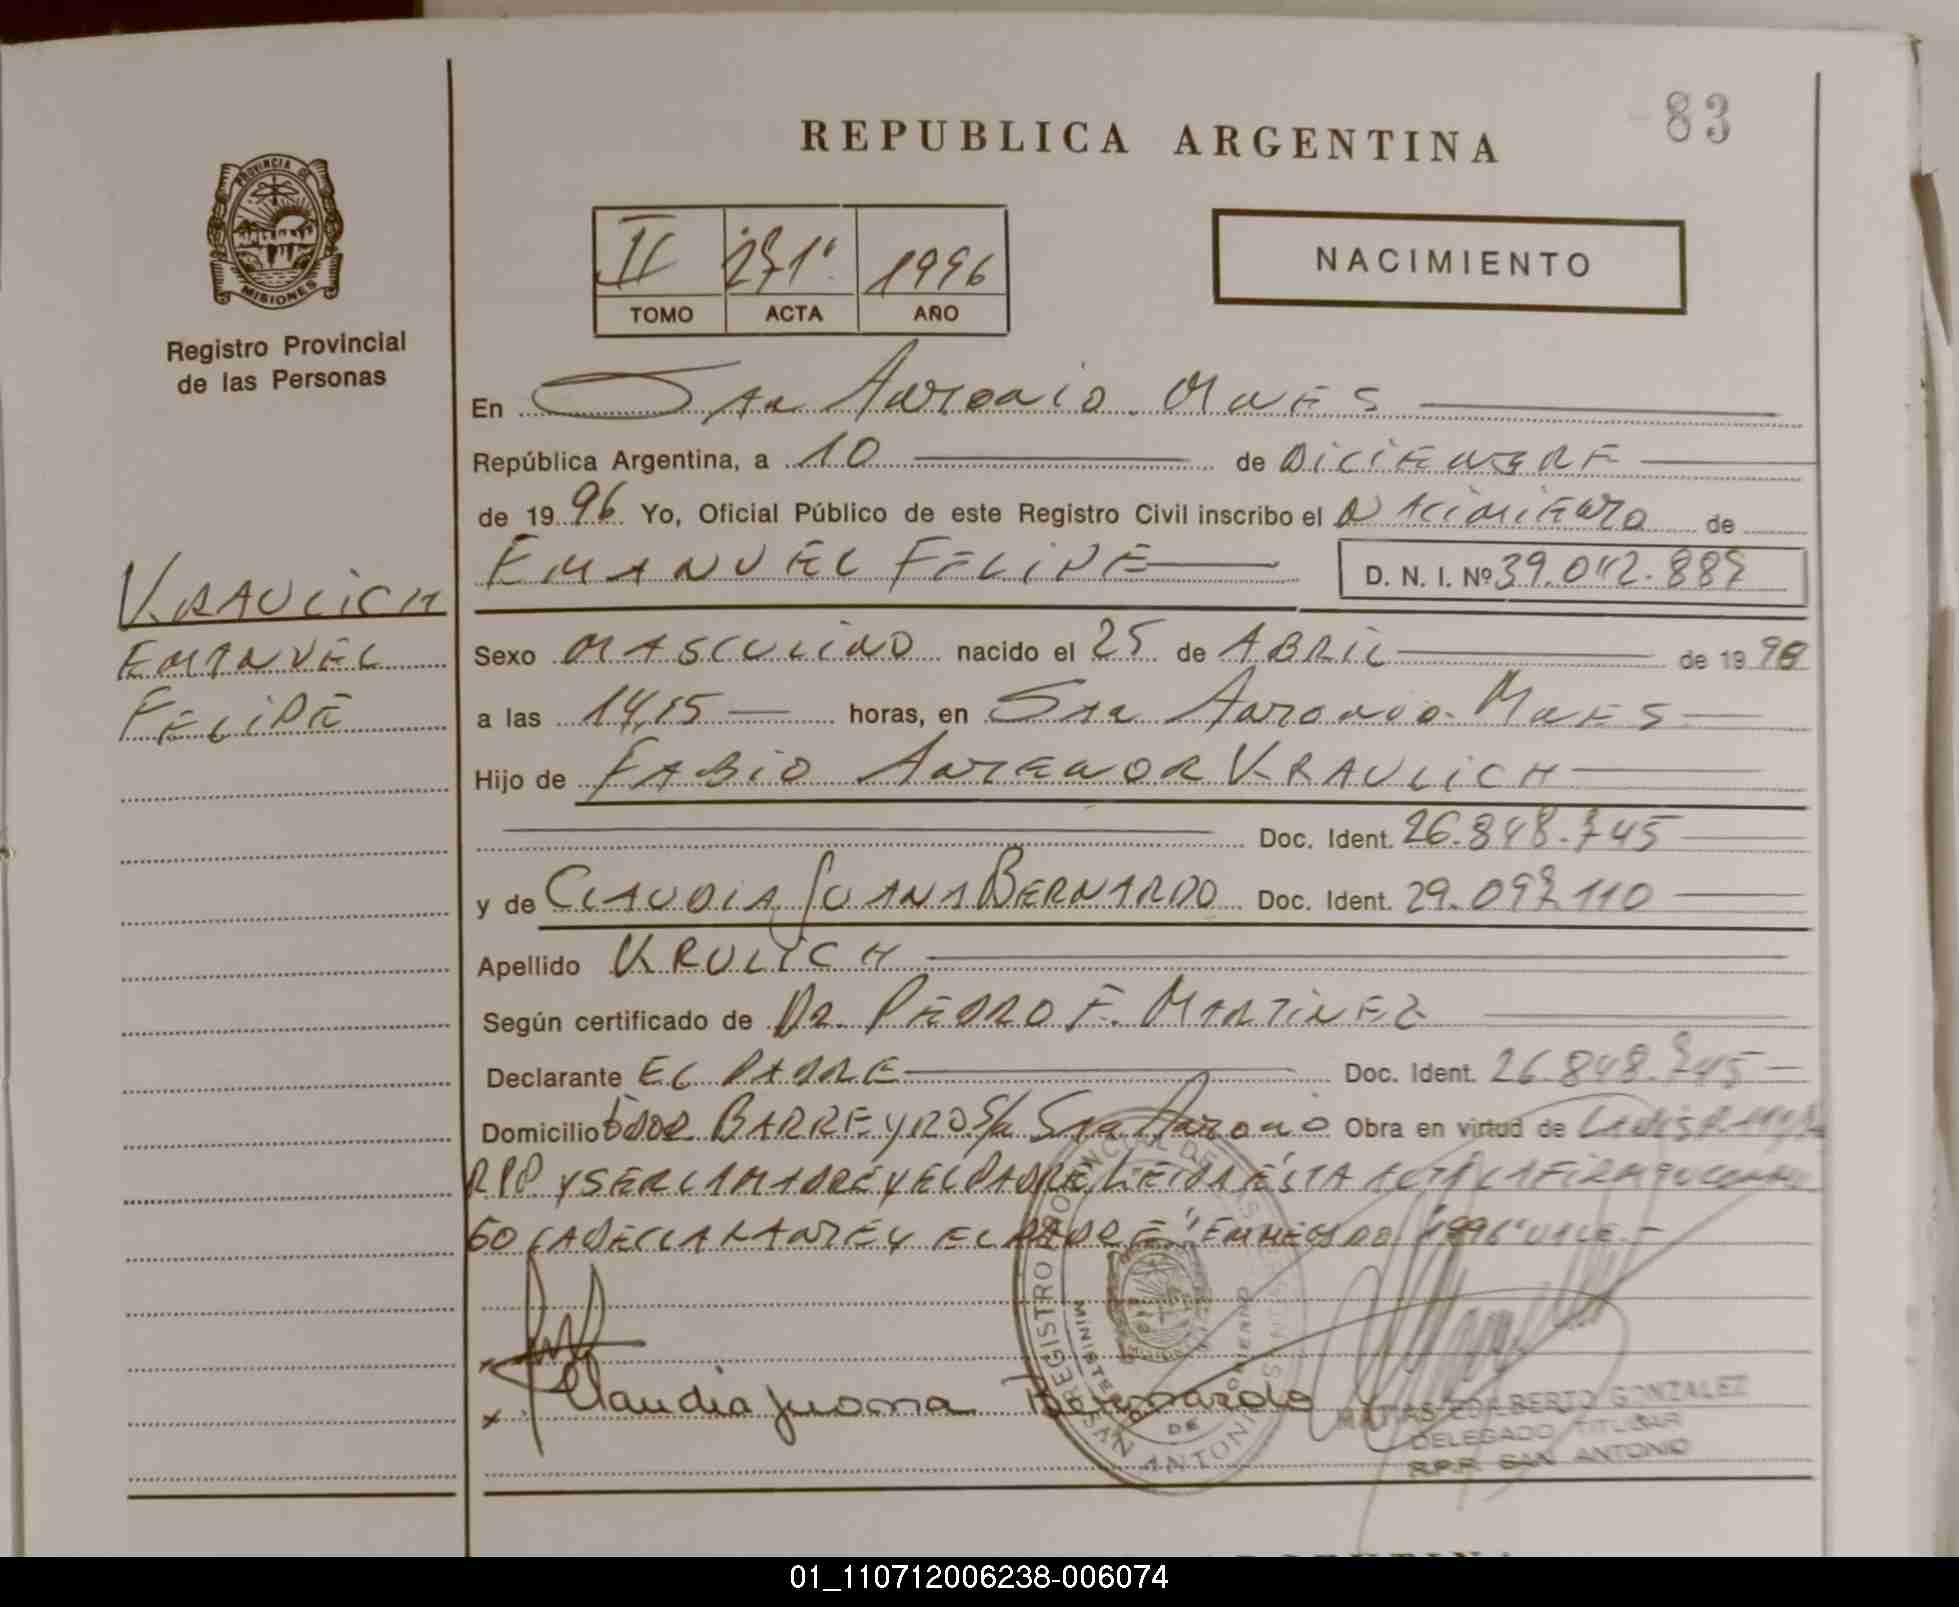 83
REPUBLICA ARGENTINA
PROVINCIA DE
MISIONES
Registro Provincial
de las Personas
NACIMIENTO
II 271 1996
TOMO ACTA AÑO
En San Antonio. Mnes
República Argentina, a 10 de DICIEMBRE
de 1996 Yo, Oficial Público de este Registro Civil inscribo el NACIMIENTO de
EMANUEL FELIPE D. N. I. Nº 39.042.887
KRAULICH
EMANUEL
FELIPE
Sexo MASCULINO nacido el 25 de ABRIL de 1996
a las 14,15 horas, en San Antonio. Mnes
Hijo de FABIO ANTENOR KRAULICH
Doc. Ident. 26.848.745
y de CLAUDIA JUANA BERNARDO Doc. Ident. 29.097.110
Apellido KRULICH
Según certificado de DR. PEDRO F. MARTINEZ
Declarante EL PADRE Doc. Ident. 26.848.745
Domicilio BARREYRO S/n San Antonio Obra en virtud de
RPP Y SER LA MADRE Y EL PADRE LEIDA ESTA ACTA LA FIRMAN
LA DECLARANTE Y EL PADRE "ENMENDADO "1996" VALE.-
Claudia Juana Bernardo
REGISTRO PROVINCIAL DE LAS PERSONAS
MINISTERIO DE GOBIERNO
SAN ANTONIO
MATIAS EDILBERTO GONZALEZ
DELEGADO TITULAR
R.P.P. SAN ANTONIO
01_110712006238-006074